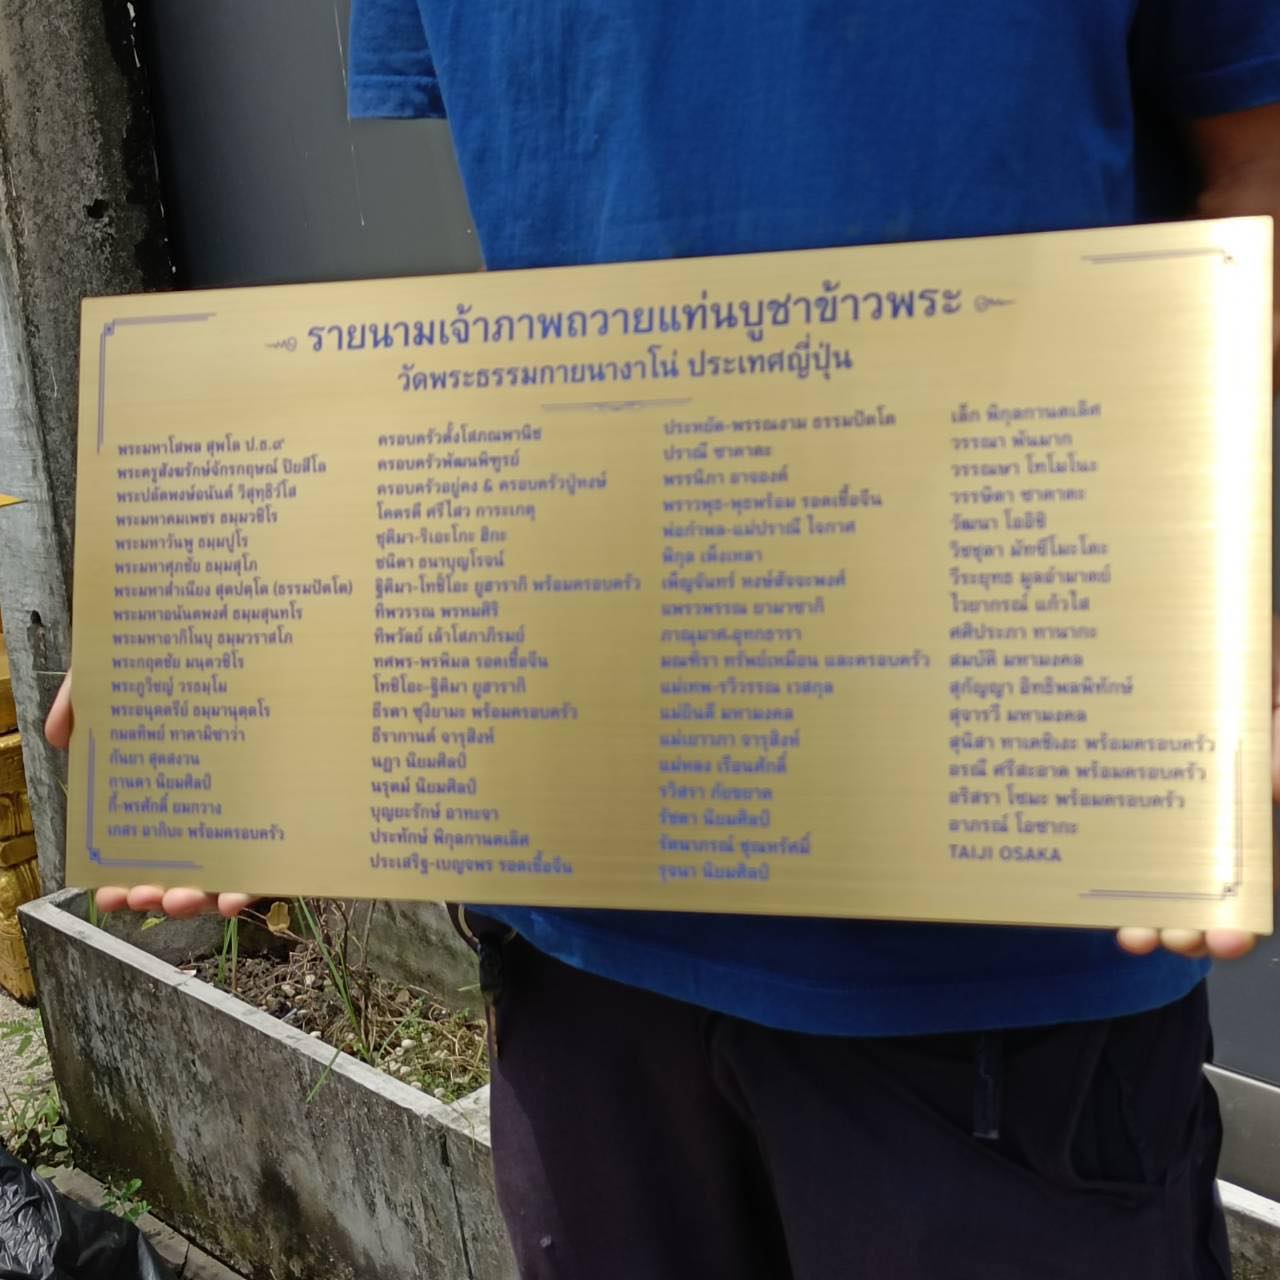 รายนามเจ้าภาพถวายแท่นบูชาข้าวพระ
วัดพระธรรมกายนางาโน่ ประเทศญี่ปุ่น
พระมหาโสพล สุพโล ป.ธ.๙
พระครูสังฆรักษ์จักรกฤษณ์ ปิยสีโล
พระปลัดพงษ์อนันต์ วิสุทฺธิวํโส
พระมหาคมเพชร ธมฺมวชิโร
พระมหาวันพู ธมฺมปูโร
พระมหาศุภชัย ธมฺมสุโภ
พระมหาสำเนียง สุตปตฺโต (ธรรมปัตโต)
พระมหาอนันตพงศ์ ธมฺมสุนฺทโร
พระมหาอากิโนบุ ธมฺมวราสโภ
พระกฤตชัย มนฺตวชิโร
พระภูวิชญ์ วรธมฺโม
พระอนุตตรีย์ ธมฺมานุตฺตโร
กมลทิพย์ ทาคามิซาว่า
กันยา สุดสงวน
กานดา นิยมศิลป์
กี้-พรศักดิ์ ยมกวาง
เกสร อาภิบะ พร้อมครอบครัว
ครอบครัวตั้งโสภณพานิช
ครอบครัวพัฒนพิฑูรย์
ครอบครัวอยู่คง & ครอบครัวปู่หงษ์
โคตรดี ศรีไสว การะเกตุ
ชุติมา-ริเอะโกะ ฮิกะ
ชนิดา ธนาบุญโรจน์
ฐิติมา-โทชิโอะ ยูฮารากิ พร้อมครอบครัว
ทิพวรรณ พรหมศิริ
ทิพวัลย์ เล้าโสภาภิรมย์
ทศพร-พรพิมล รอดเชื้อจีน
โทชิโอะ-ฐิติมา ยูฮารากิ
ธีรตา ซุงิยามะ พร้อมครอบครัว
ธีรากานต์ จารุสิงห์
นฏา นิยมศิลป์
นรุตม์ นิยมศิลป์
บุญยะรักษ์ อาทะจา
ประทักษ์ พิกุลกานตเลิศ
ประเสริฐ-เบญจพร รอดเชื้อจีน
ประหยัด-พรรณงาม ธรรมปัตโต
ปราณี ซาคาตะ
พรรนิภา อาจองค์
พราวพุธ-พุธพร้อม รอดเชื้อจีน
พ่อกำพล-แม่ปราณี ใจกาศ
พิกุล เพ็งเหลา
เพ็ญจันทร์ หงษ์สัจจะพงศ์
แพรวพรรณ ยามาซากิ
ภาณุมาศ-อุทกธารา
มณฑิรา ทรัพย์เหมือน และครอบครัว
แม่เทพ-รวีวรรณ เวสกุล
แม่ยินดี มหามงคล
แม่เยาวภา จารุสิงห์
แม่หลง เรือนศักดิ์
รวิสรา ภัยขยาด
รัชดา นิยมศิลป์
รัตนาภรณ์ ชุณหรัศมิ์
รุจนา นิยมศิลป์
เล็ก พิกุลกานตเลิศ
วรรณา พันมาก
วรรณษา โทโมโนะ
วรรษิตา ซาคาตะ
วัฒนา โออิชิ
วิชชุดา มัทซึโมะโตะ
วีระยุทธ มูลอำมาตย์
ไวยากรณ์ แก้วใส
ศศิประภา ทานากะ
สมบัติ มหามงคล
สุกัญญา อิทธิพลพิทักษ์
สุจารวี มหามงคล
สุนิสา ทาเคชิเงะ พร้อมครอบครัว
อรณี ศรีสะอาด พร้อมครอบครัว
อริสรา โซมะ พร้อมครอบครัว
อาภรณ์ โอซากะ
TAIJI OSAKA